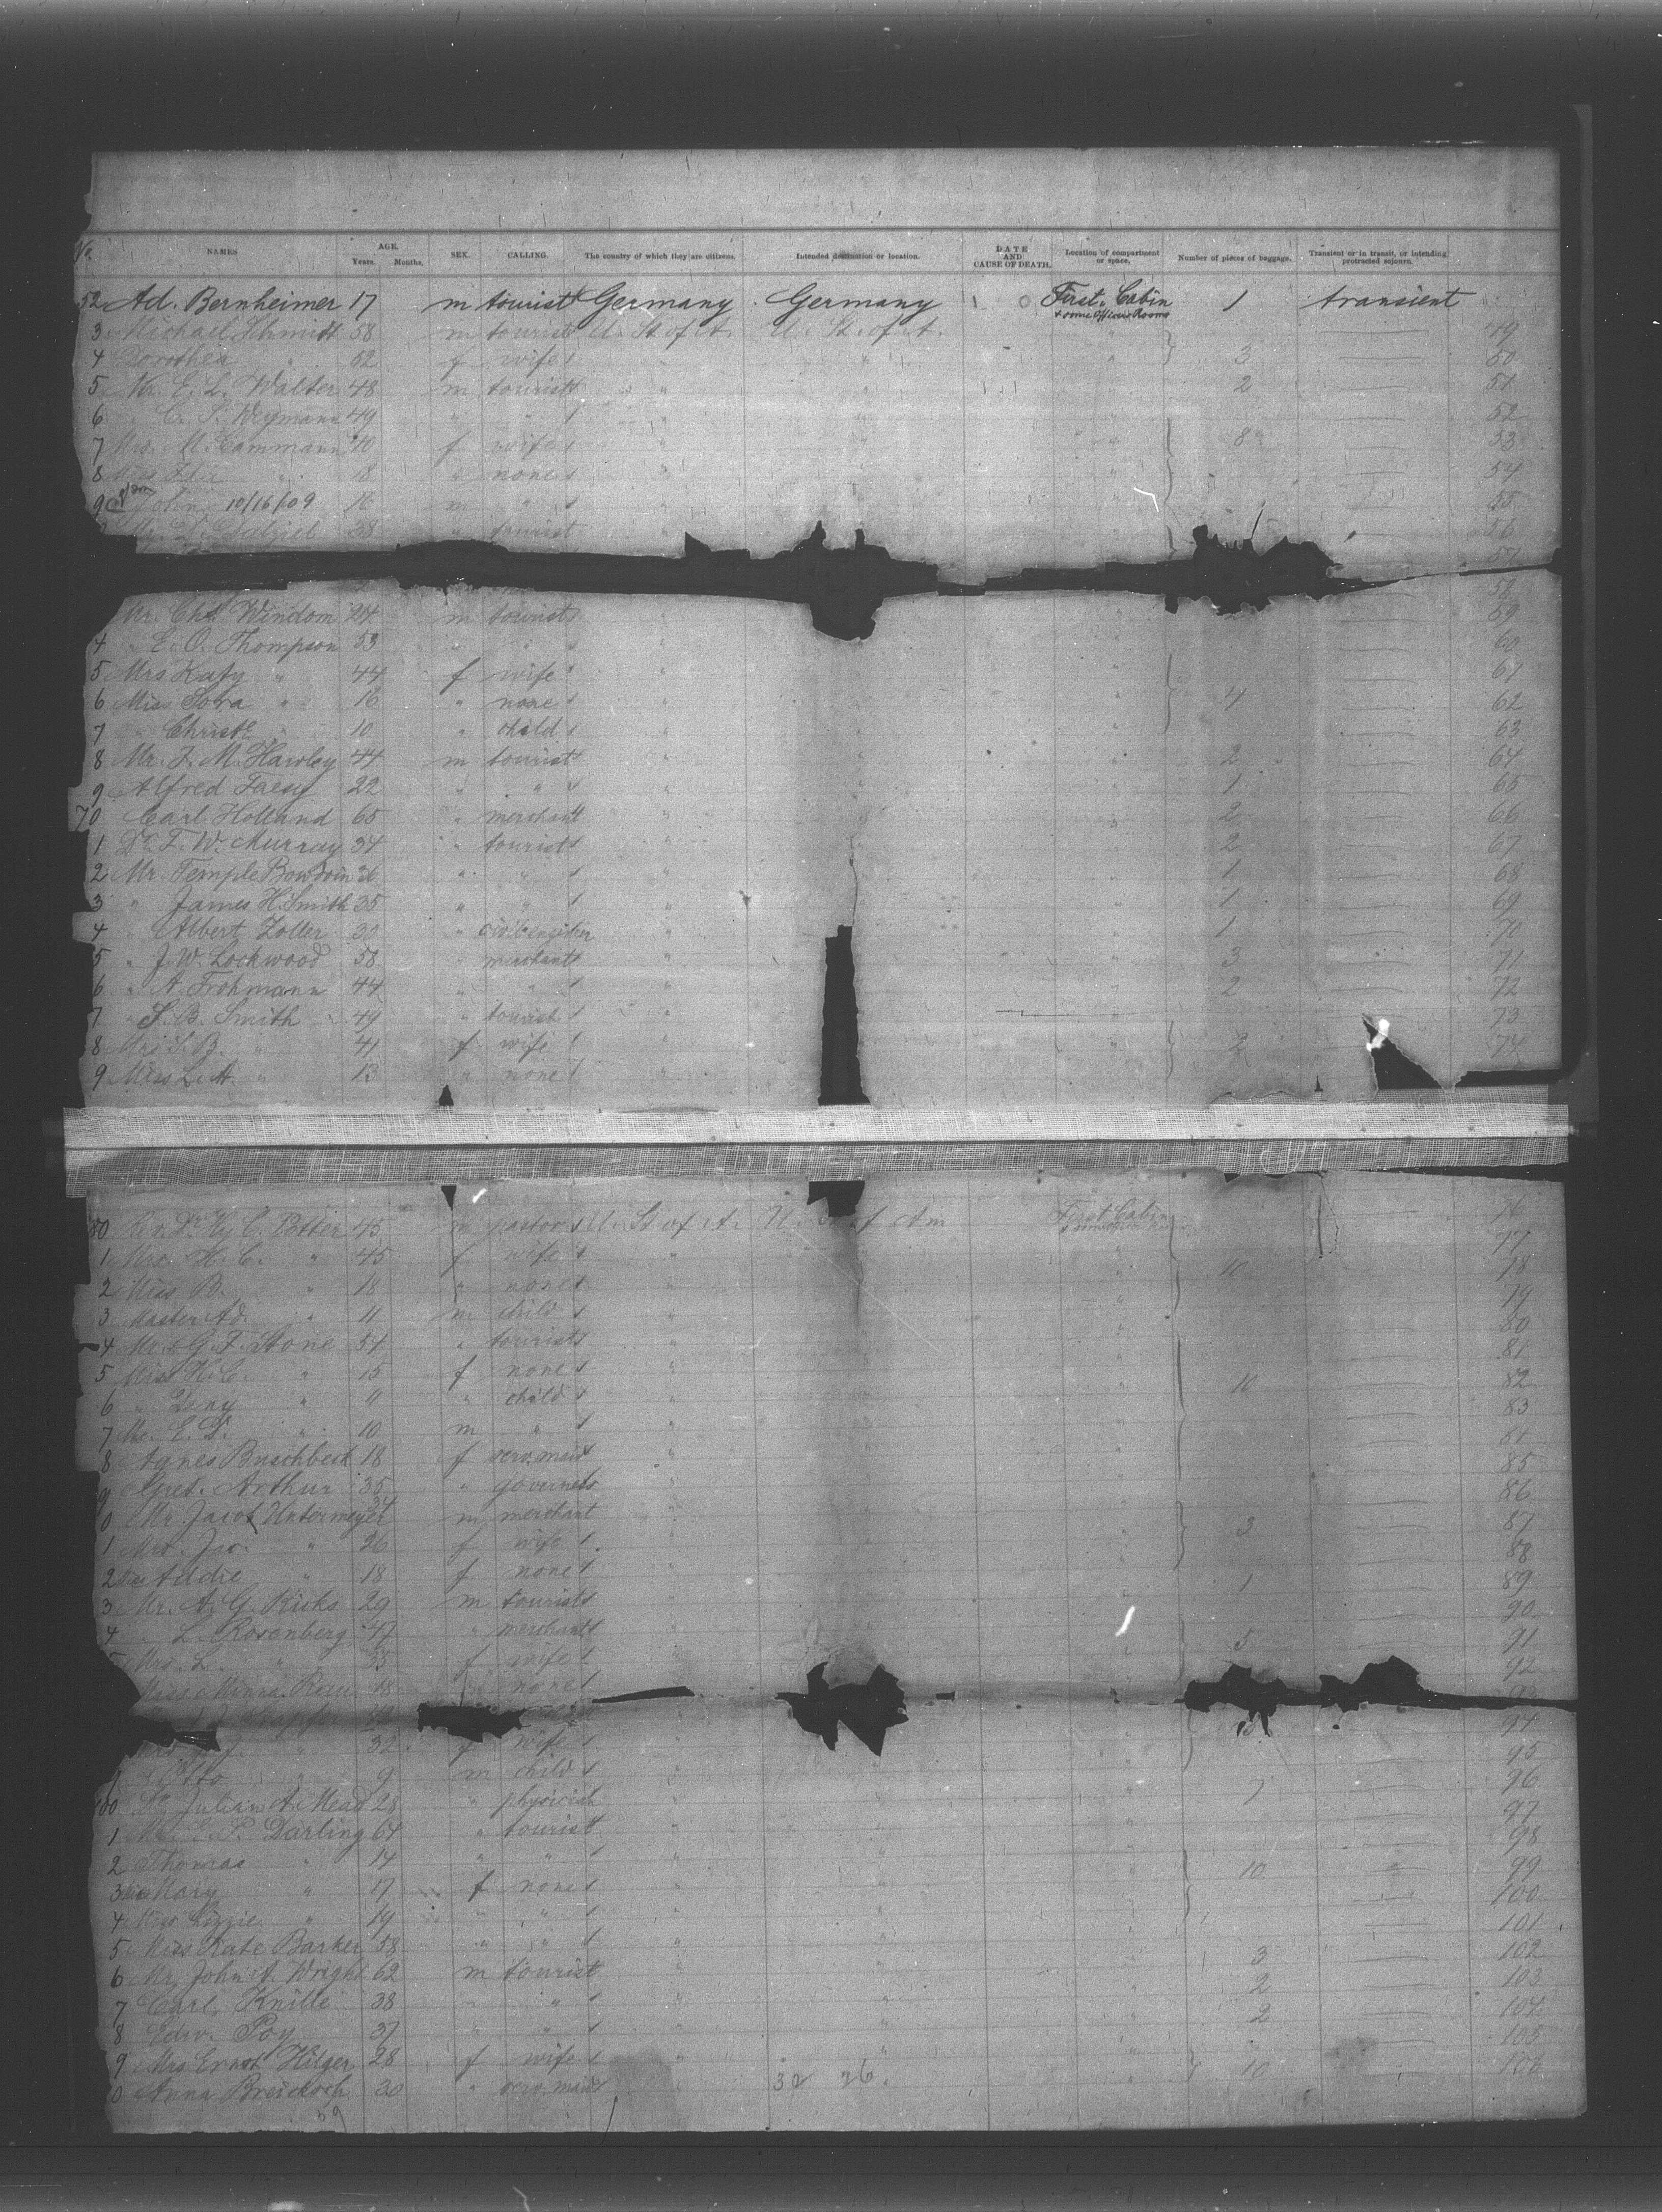 No. NAMES AGE. Years. Months. SEX. CALLING. The country of which they are citizens. Intended destination or location. DATE AND CAUSE OF DEATH. Location of compartment or space. Number of pieces of baggage. Transient or in transit, or intending protracted sojourn.
52 Ad. Bernheimer 17 m tourist Germany Germany First Cabin 1 transient
+ some Officers Rooms
3 Michael Schmitt 58 m tourist U. St. of A. U. St. of A. 49
4 Dorothea " 52 f wife 3 50
5 Mr. E. L. Walter 48 m tourist " 2 51
6 " C. S. Weymann 49 " " " 52
7 Mrs. M. Cammann 40 f wife " 8 53
8 Miss " 18 " none " 54
9 John 10/16/09 16 m " " 55
Mr. D. Dalziel 38 " tourist 56
57
58
Mr. Chs. Windom 24 m tourist " 59
4 " E. O. Thompson 53 " " " 60
5 Mrs Katy " 44 f wife " 61
6 Miss " 16 " none " 4 62
7 " " 10 " child " 63
8 Mr. F. M. Hawley 44 m tourist " 2 64
9 Alfred Faesy 22 " " " 1 65
70 Carl Holland 65 " merchant " 2 66
1 Dr. F. W. Murray 34 " tourist " 2 67
2 Mr. Temple Bowdoin 26 " " " 1 68
3 " James H. Smith 35 " " " 1 69
4 " Albert Zoller 30 " civil engineer " 1 70
5 " J. W. Lockwood 58 " merchant " 3 71
6 " A. Frohmann 44 " " " 2 72
7 " S. B. Smith 49 " tourist " 73
8 Mrs S. B. " 41 f wife " 2 74
9 Miss L. A. " 13 " none "
80 Rev. Dr. Hy C. Potter 45 m pastor U. St of A. U. St of Am First Cabin 76
1 Mrs. H. C. " 45 f wife " 77
2 Miss B. " 18 " none " 10 78
3 Master Ad. " 11 m child " 79
4 Mr. G. F. Stone 54 " tourist " 80
5 Miss H. C. " 15 f none " 81
6 " " 11 " child " 10 82
7 Mr. E. D. " 10 m " " 83
8 Agnes Buschbeck 18 f serv. maid " 84
9 Gret. Arthur 35 " governess " 85
0 Mr. Jacob Untermeyer 34 m merchant " 86
1 Mrs. Jac. " 26 f wife " 3 87
2 Miss Addie " 18 f none " 88
3 Mr. A. G. Ricks 29 m tourist " 1 89
4 " L. Rosenberg 47 " merchant " 90
5 Mrs. L. " 35 f wife " 5 91
Miss Minna 18 " none " 92
93
Mrs. " 32 f wife " 94
Otto " 9 m child " 95
100 Dr. Julian A. Mead 28 " physician " 7 96
1 Mr. P. Darling 64 " tourist " 97
2 Thomas " 14 " " " 98
3 Miss Mary " 17 f none " 10 99
4 Miss Lizzie " 19 " " " 100
5 Miss Kate Barker 58 " " " 101
6 Mr. John A. Wright 62 m tourist " 3 102
7 Carl Knille 38 " " " 2 103
8 Edw. Poy 37 " " " 2 104
9 Mrs Ernst Hilger 28 f wife " 105
0 Anna 30 " serv. maid 32 26. 10 106